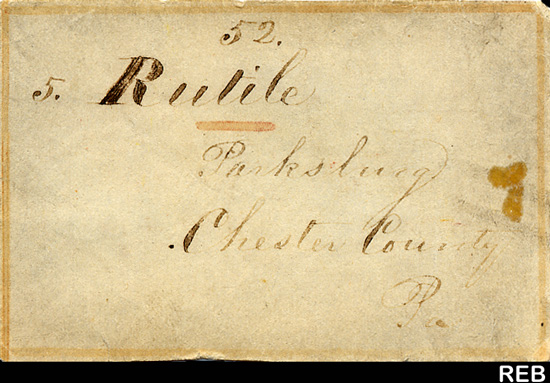 52.
5. Rutile
Parksburg
Chester County
Pa
REB